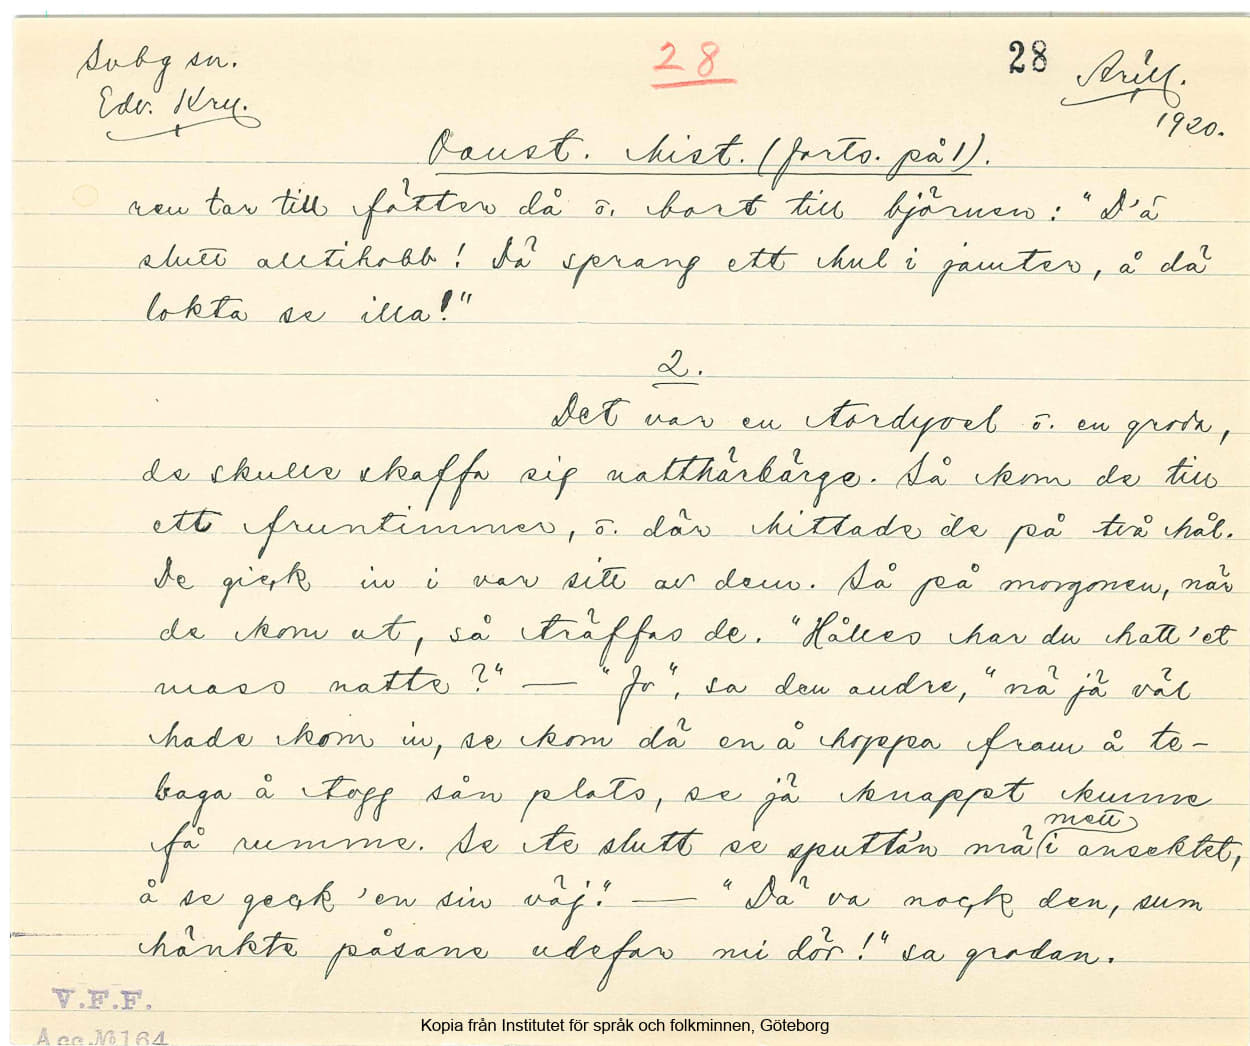 Svbg sn.
28
28
Arill.
Edv. Kru.
1920.
Oanst. hist. (forts. på 1).
ren tar till fötter då o. bort till björnen: "D'ä
slutt alltihobb! Dä sprang ett hul i jamter, å dä
lokta se illa!"
2.
Det var en tordyvel o. en groda,
de skulle skaffa sig natthärbärge. Så kom de till
ett fruntimmer, o. där hittade de på två hål.
De gick in i var sitt av dem. Så på morgonen, när
de kom ut, så träffas de. "Hålles har du hatt'et
mass natte?" — "Jo", sa den andre, "nä jä väl
hade kom in, se kom dä en å hoppa fram å te-
baga å togg sån plats, se jä knappt kunne
få rumme. Se te slutt se sputta'n mä mett i ansektet,
å se geck 'en sin väj." — "Dä va nock den, sum
hänkte påsane udefar mi dör!" sa grodan.
V.F.F.
Acc. № 164
Kopia från Institutet för språk och folkminnen, Göteborg